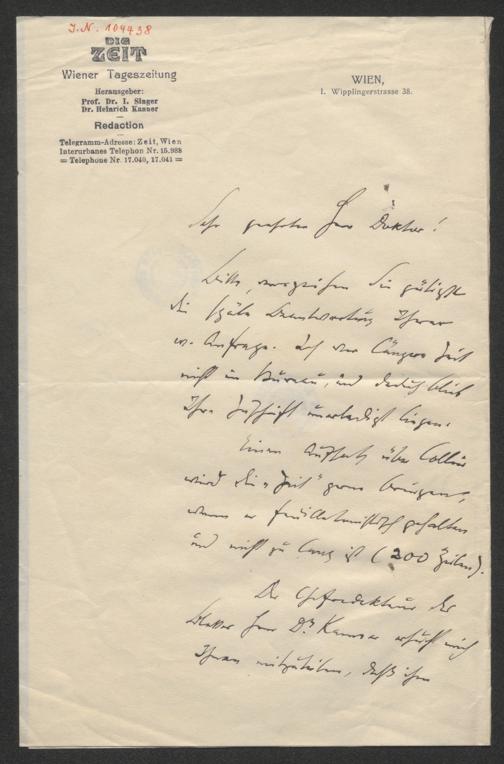 J.N. 104438
DIE
ZEIT
Wiener Tageszeitung
Herausgeber:
Prof. Dr. I. Singer
Dr. Heinrich Kanner
Redaction
Telegramm-Adresse: Zeit, Wien
Interurbanes Telephon Nr. 15.988
= Telephone Nr. 17.040, 17.041 =
WIEN,
I. Wipplingerstrasse 38.
Sehr geehrter Herr Doktor!
Bitte, verzeihen Sie gütigst
die späte Beantwortung Ihrer
w. Anfrage. Ich war längere Zeit
nicht im Bureau, und dadurch blieb
Ihre Zuschrift unerledigt liegen.
Einen Aufsatz über Collin
wird die „Zeit" gerne bringen,
wenn er feuilletonistisch gehalten
und nicht zu lang ist (200 Zeilen).
Der Chefredakteur des
Blattes Herr Dr Kanner ersucht mich
Ihnen mitzuteilen, daß ihm